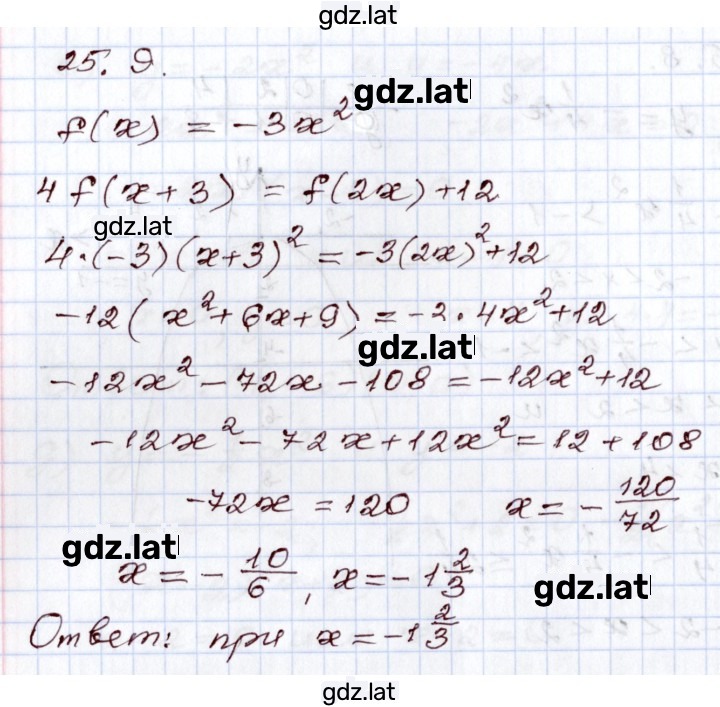 gdz.lat
25. 9.
gdz.lat
f(x) = -3x²
4 f(x+3) = f(2x)+12
gdz.lat
4·(-3)(x+3)² = -3(2x)²+12
-12(x²+6x+9) = -2·4x²+12
gdz.lat
-12x² - 72x - 108 = -12x²+12
-12x² - 72x + 12x² = 12+108
-72x = 120 x = - 120/72
gdz.lat
x = - 10/6, x = -1 2/3
gdz.lat
Ответ: при x = -1 2/3
gdz.lat